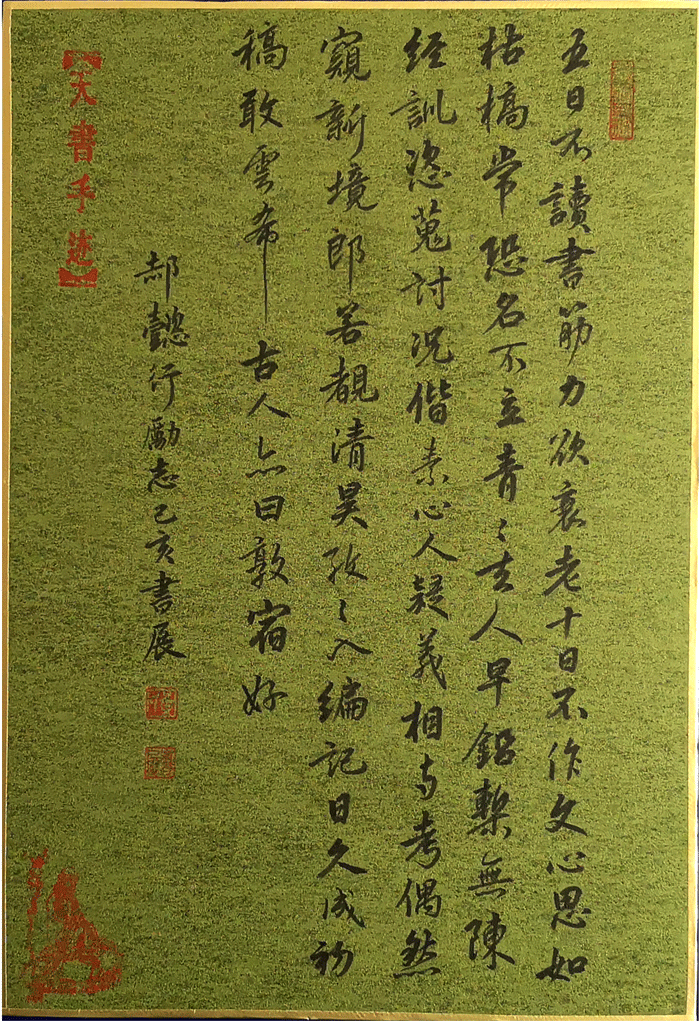 五日不讀書筋力欲衰老十日不作文心思如
枯槁常恐名不立青〻去人早鉛槧無陳
經訓恣蒐討况偕素心人疑義相与考偶然
窺新境郎若覩清昊孜〻入編記日久成初
稿敢云希古人亦曰敦宿好
郝懿行勵志己亥書展
【天書手迹】